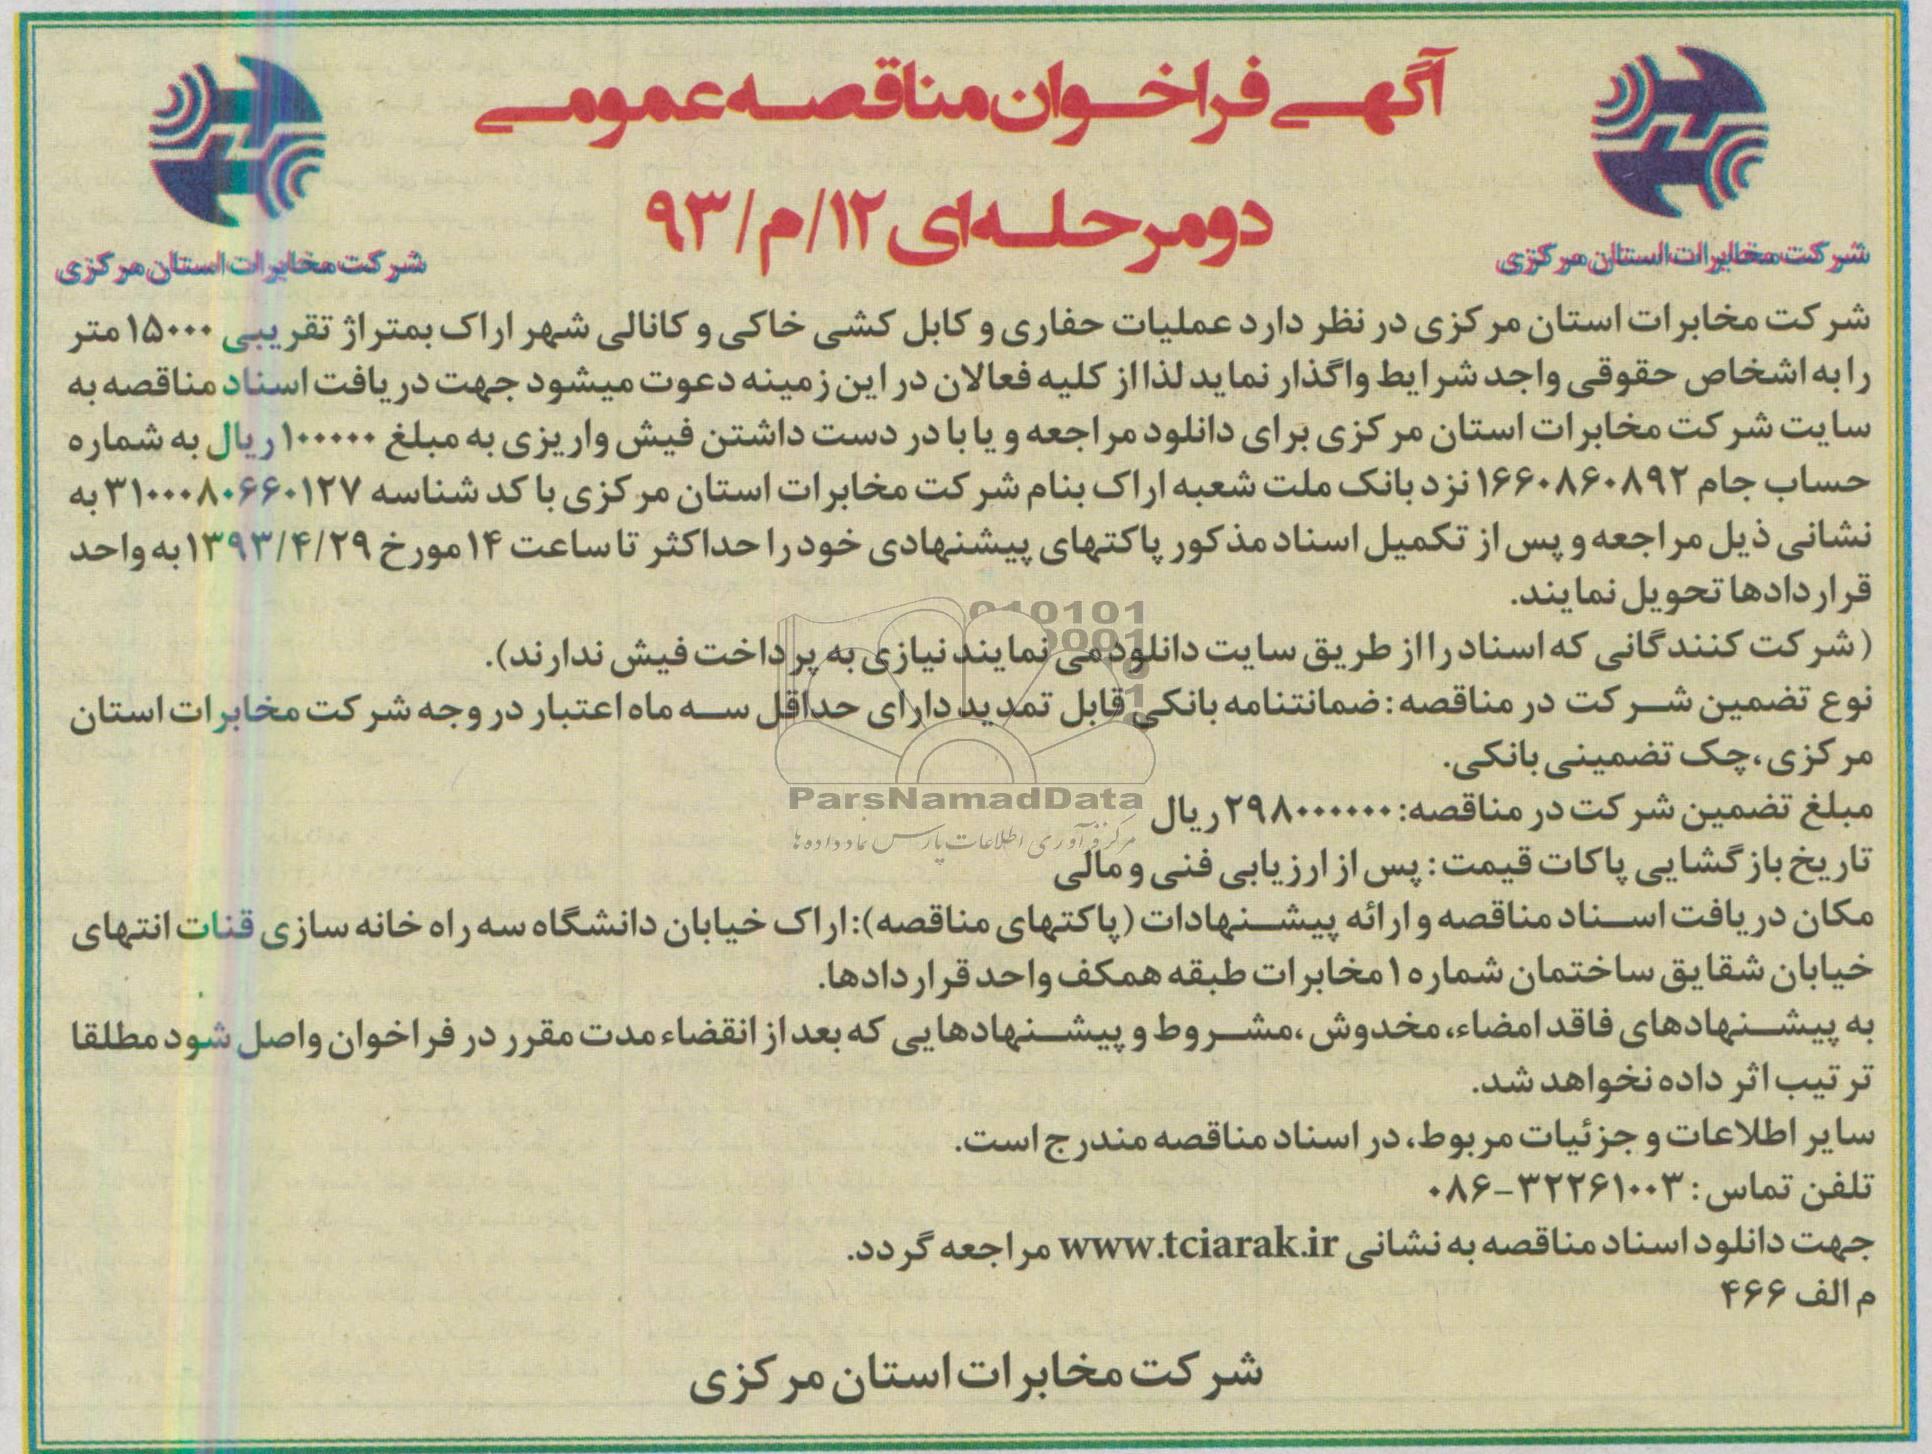 آگهی فراخوان مناقصه عمومی
دومرحله‌ای ۱۲/م/۹۳
شرکت مخابرات استان مرکزی
شرکت مخابرات استان مرکزی
شرکت مخابرات استان مرکزی در نظر دارد عملیات حفاری و کابل کشی خاکی و کانالی شهر اراک بمتراژ تقریبی ۱۵۰۰۰ متر
را به اشخاص حقوقی واجد شرایط واگذار نماید لذا از کلیه فعالان در این زمینه دعوت میشود جهت دریافت اسناد مناقصه به
سایت شرکت مخابرات استان مرکزی برای دانلود مراجعه و یا با در دست داشتن فیش واریزی به مبلغ ۱۰۰۰۰۰ ریال به شماره
حساب جام ۱۶۶۰۸۶۰۸۹۲ نزد بانک ملت شعبه اراک بنام شرکت مخابرات استان مرکزی با کد شناسه ۳۱۰۰۰۸۰۶۶۰۱۲۷ به
نشانی ذیل مراجعه و پس از تکمیل اسناد مذکور پاکتهای پیشنهادی خود را حداکثر تا ساعت ۱۴ مورخ ۱۳۹۳/۴/۲۹ به واحد
قراردادها تحویل نمایند.
(شرکت کنندگانی که اسناد را از طریق سایت دانلود می نمایند نیازی به پرداخت فیش ندارند).
نوع تضمین شرکت در مناقصه: ضمانتنامه بانکی قابل تمدید دارای حداقل سه ماه اعتبار در وجه شرکت مخابرات استان
مرکزی، چک تضمینی بانکی.
مبلغ تضمین شرکت در مناقصه: ۲۹۸۰۰۰۰۰۰ ریال
تاریخ بازگشایی پاکات قیمت: پس از ارزیابی فنی و مالی
مکان دریافت اسناد مناقصه و ارائه پیشنهادات (پاکتهای مناقصه): اراک خیابان دانشگاه سه راه خانه سازی قنات انتهای
خیابان شقایق ساختمان شماره ۱ مخابرات طبقه همکف واحد قراردادها.
به پیشنهادهای فاقد امضاء، مخدوش، مشروط و پیشنهادهایی که بعد از انقضاء مدت مقرر در فراخوان واصل شود مطلقا
ترتیب اثر داده نخواهد شد.
سایر اطلاعات و جزئیات مربوط، در اسناد مناقصه مندرج است.
تلفن تماس: ۳۲۲۶۱۰۰۳-۰۸۶
جهت دانلود اسناد مناقصه به نشانی www.tciarak.ir مراجعه گردد.
م الف ۴۶۶
شرکت مخابرات استان مرکزی
ParsNamadData
مرکز فرآوری اطلاعات پارس نماد داده ها